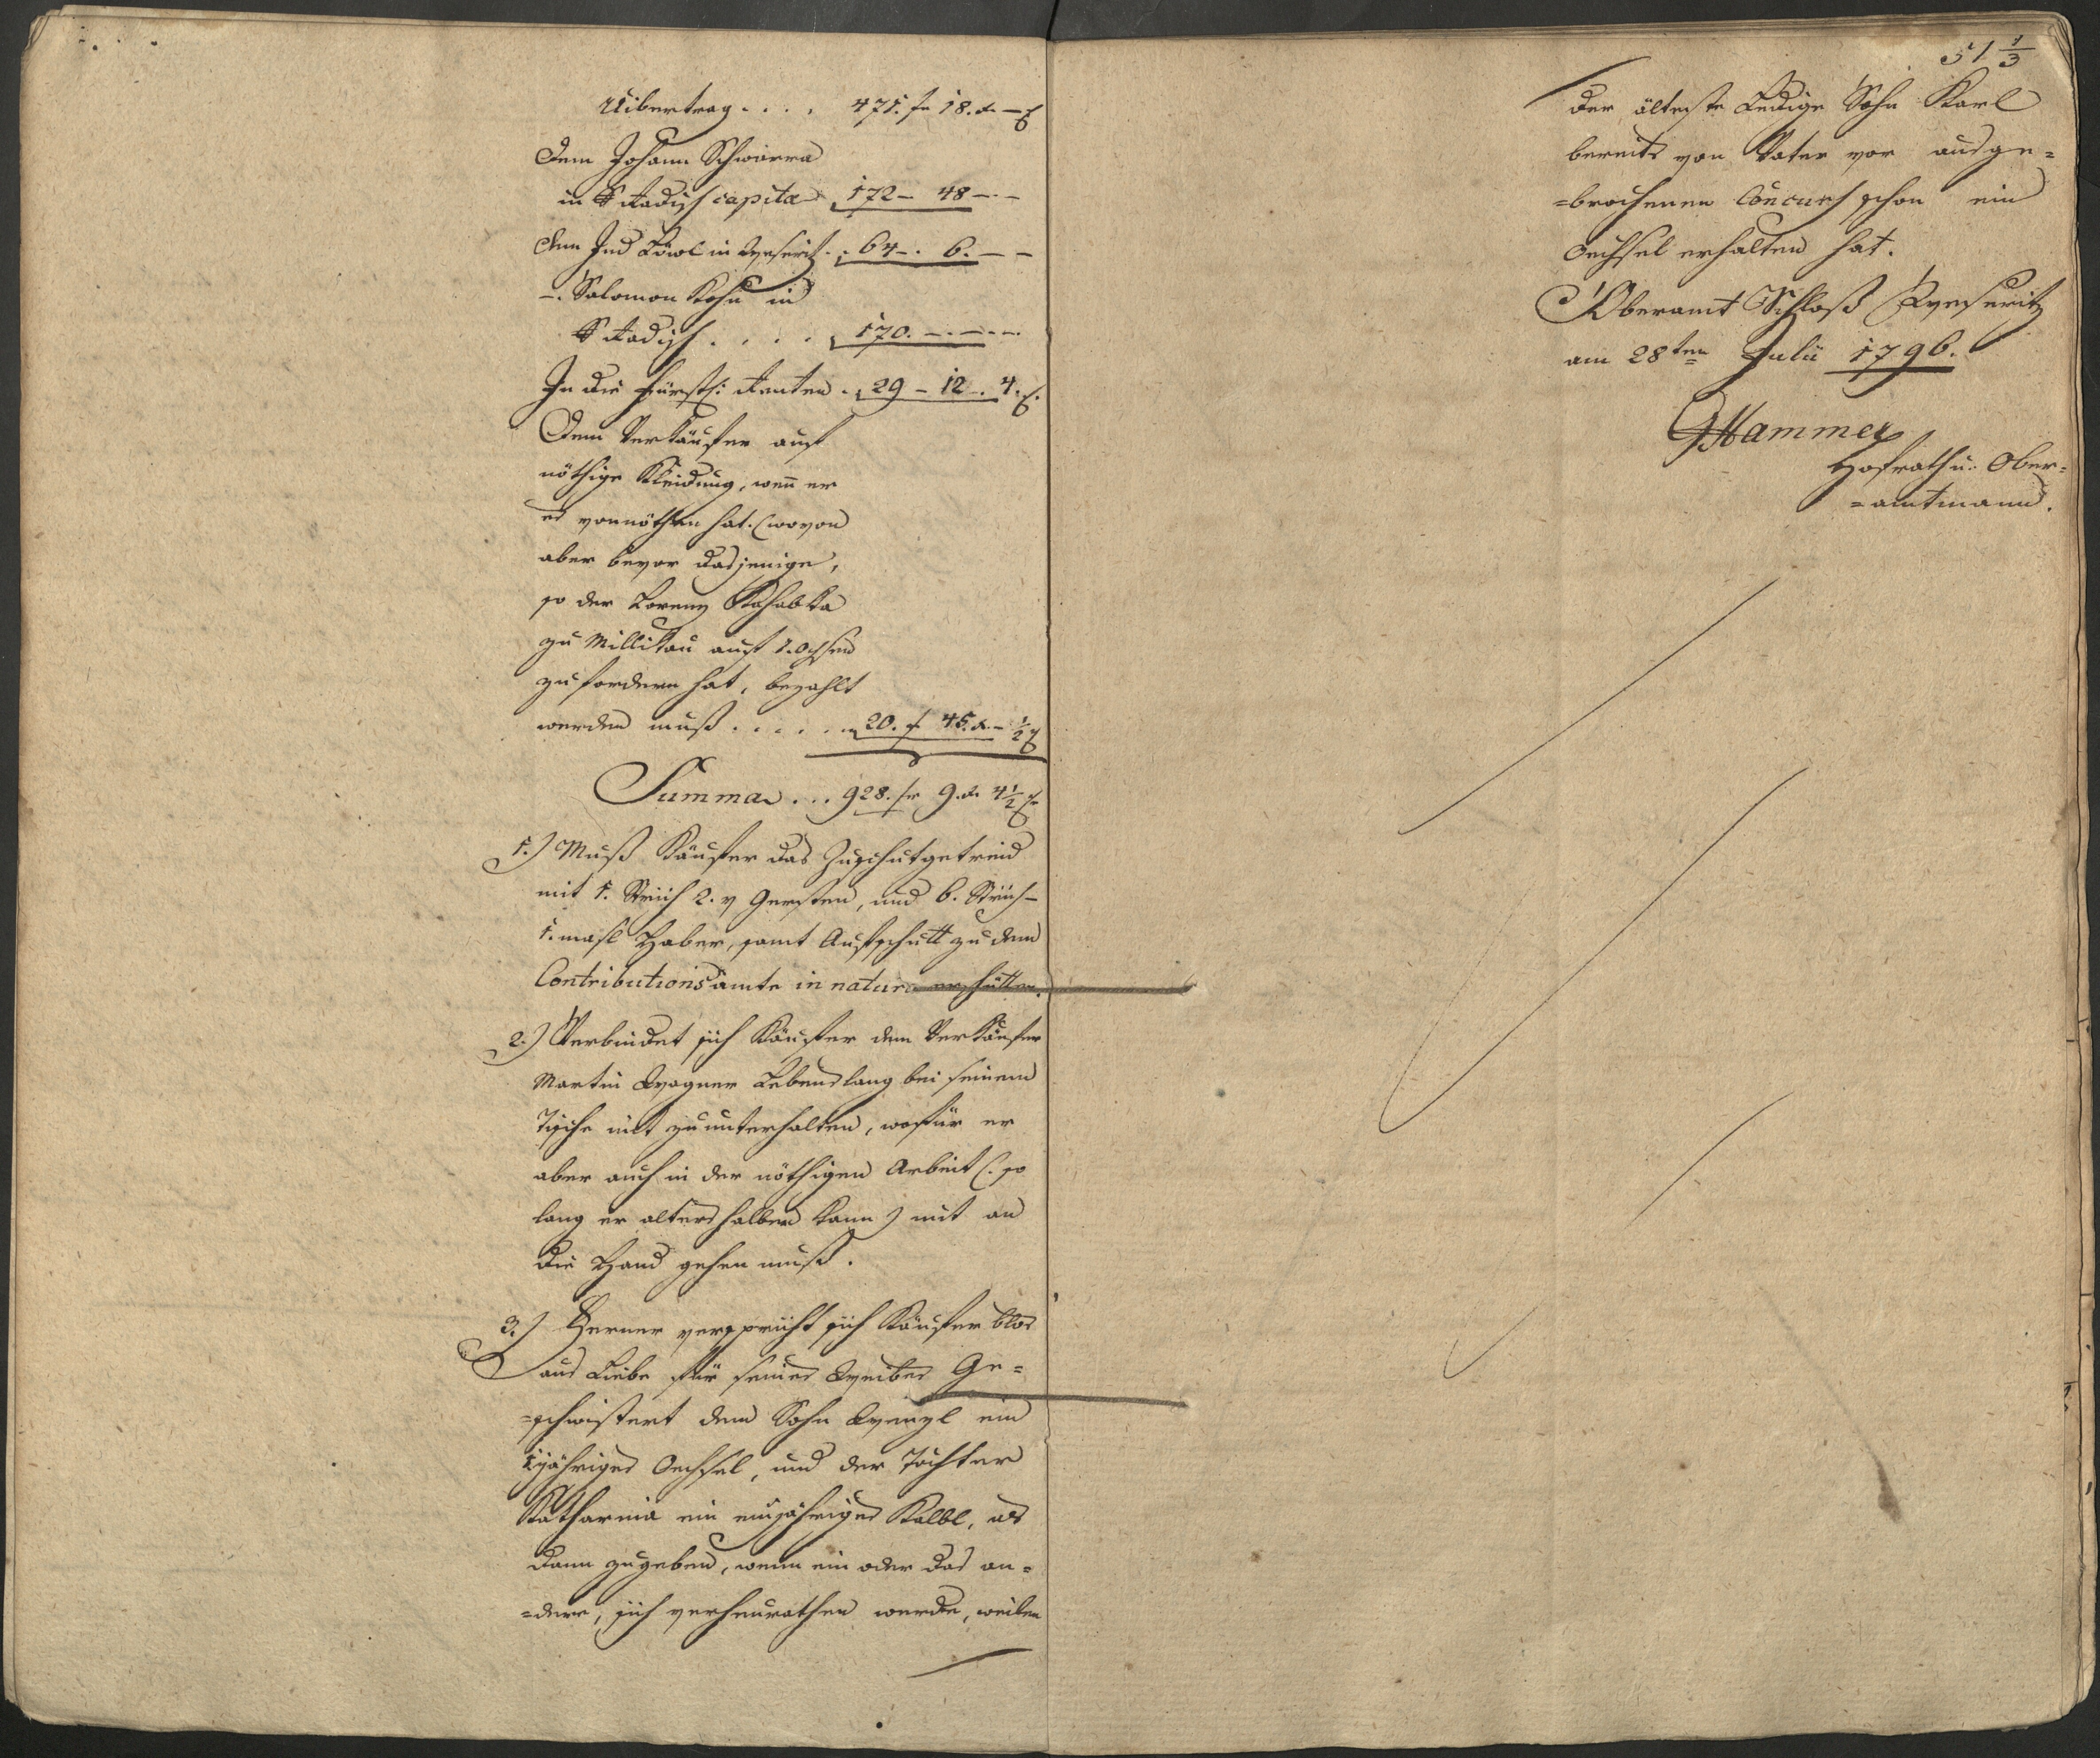 Uibertrag . . . . 471. f 18. x –
Dem Johann Schwarra
in Stadisch capita 172 – 48 – –
dem Jud Löwl in Weseritz . . 64 – . 6. – –
– . Salomon Kohn in
Stadisch . . . . 170. – . – . –
In die fürstl: Renten . . 29 – 12 – . 4.
Dem Verkäufer auf
nöthige Kleidung, weñ er
es vonnöthen hat. (wovon
aber bevor dasjenige,
so der Lorenz Kahabka
zu Millikau auf 1. Ochsen
zufordern hat, bezahlt
werden muß . . . . . . 20. f 45. x – ½
Summa . . . 928. f 9. x 4½
1.) Muß Käufer das Zuschutgetreid
mit 1. Strich 2. v Gersten, und 6. Strich
1. masl Haber, samt Aufschutt zu dem
Contributionsamte in natura erschütten.
2.) Verbindet sich Käufer dem Verkäufer
Martin Wagner Lebenslang bei seinem
Tische mit zuunterhalten, wofür er
aber auch in der nöthigen Arbeit (: so
lang er alters halber kann) mit an
die Hand gehen muß.
3.) Ferner verspricht sich Käufer blos
aus Liebe für seines Weibes Ge=
=schwistert dem Sohn Wenzl ein
1jähriges Oechsel, und der Tochter
Katharina ein einjähriges Kalbl, als
dann zugeben, wenn ein oder das an=
=dere, sich verheurathen werde, weilen
51 1/3
der älteste Ledige Sohn Karl
bereits von Vater vor ausge=
=brochenen Concurs schon ein
Oechsel erhalten hat.
Oberamt Schloß Weseritz
am 28ten Julii 1796.
GHammer
Hofrath u. Ober=
=amtmann.